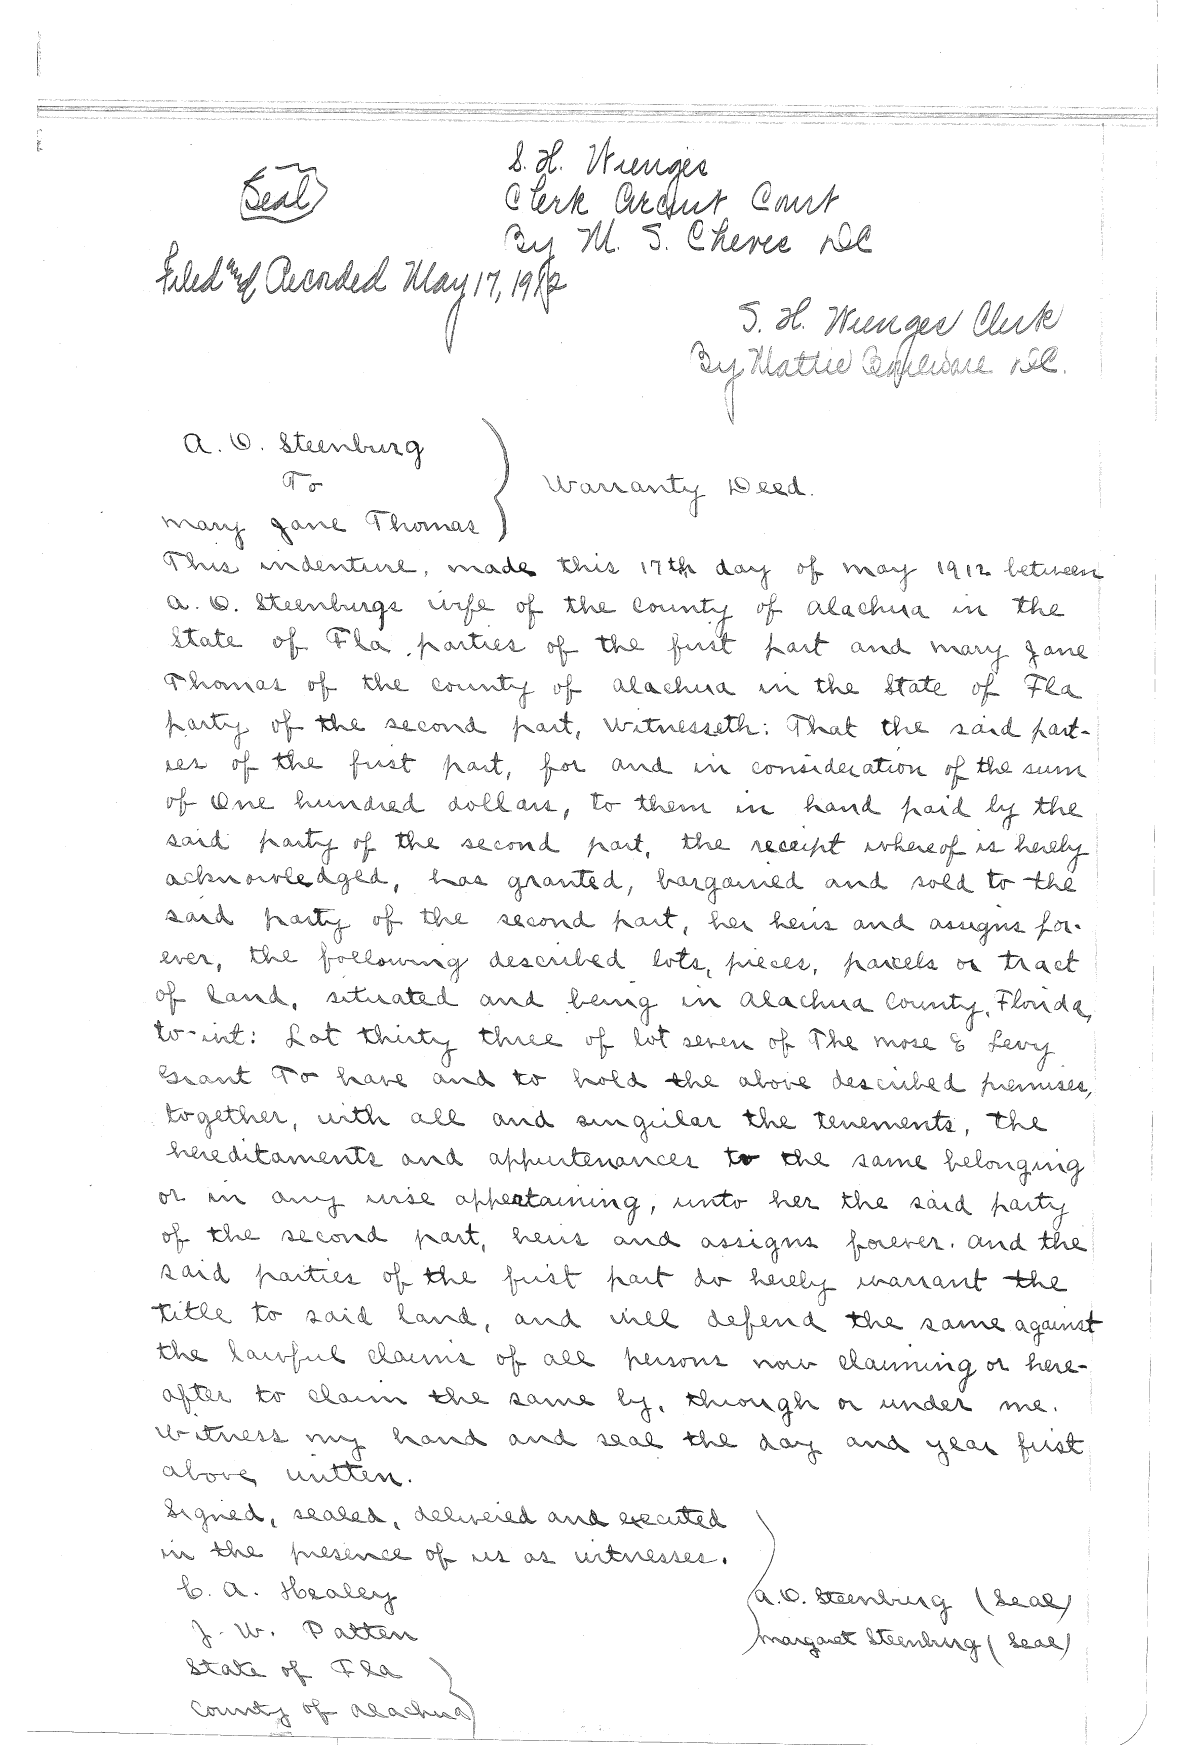 Seal
S. H. Wienges
Clerk Circuit Court
By M. S. Cheves DC
Filed and Recorded May 17, 1912
S. H. Wienges Clerk
By Mattie DC.
A. O. Steenburg
To
Mary Jane Thomas
Warranty Deed.
This indenture, made this 17th day of May 1912 between
A. O. Steenburgs wife of the county of Alachua in the
State of Fla parties of the first part and Mary Jane
Thomas of the county of Alachua in the State of Fla
party of the second part, Witnesseth: That the said part-
ies of the first part, for and in consideration of the sum
of One hundred dollars, to them in hand paid by the
said party of the second part, the receipt whereof is hereby
acknowledged, has granted, bargained and sold to the
said party of the second part, her heirs and assigns for-
ever, the following described lots, pieces, parcels or tract
of land, situated and being in Alachua County, Florida,
to-wit: Lot thirty three of lot seven of The Mose E Levy
Grant To have and to hold the above described premises,
together, with all and singular the tenements, the
hereditaments and appurtenances to the same belonging
or in any wise appertaining, unto her the said party
of the second part, heirs and assigns forever. And the
said parties of the first part do hereby warrant the
title to said land, and will defend the same against
the lawful claims of all persons now claiming or here-
after to claim the same by, through or under me.
Witness my hand and seal the day and year first
above written.
Signed, sealed, delivered and executed
in the presence of us as witnesses.
C. A. Healey
J. W. Patten
A. O. Steenburg (Seal)
Margaret Steenburg (Seal)
State of Fla
County of Alachua